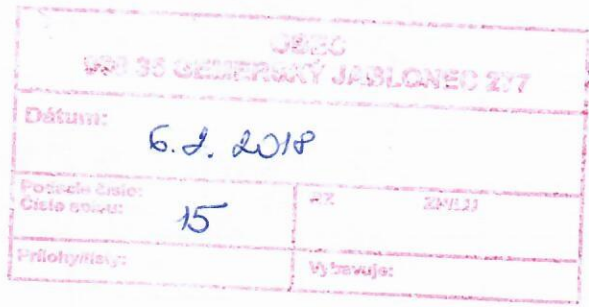 OBEC
GEMERSKÝ JABLONEC 277
Dátum:
6.2.2018
Podacie číslo:
Číslo spisu:
15
Prílohy/listy:
Vybavuje: